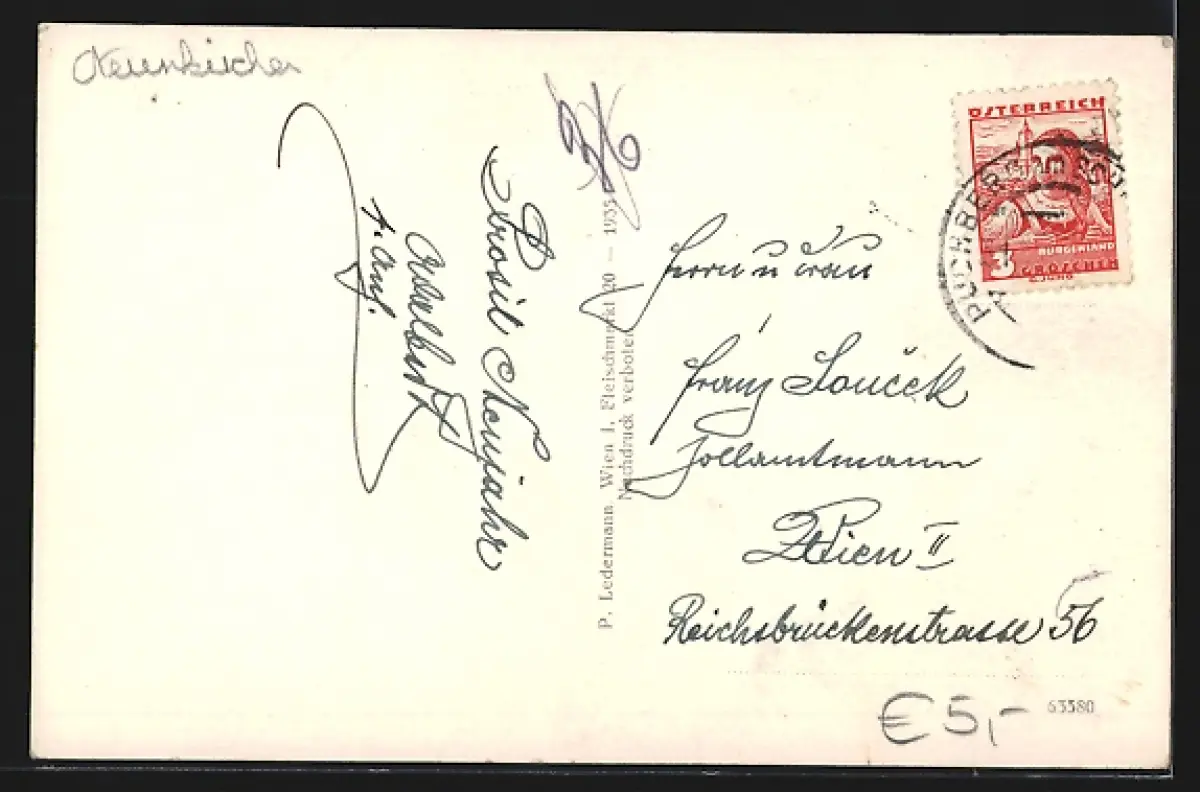 Neunkirchen
Prosit Neujahr
Adalbert
P. Ledermann, Wien I, Fleischmarkt 20 — 1935
Nachdruck verboten
ÖSTERREICH
BURGENLAND
3 GROSCHEN
PUCHBERG
Herrn u Frau
Franz Souček
Zollamtmann
Wien II
Reichsbrückenstrasse 56
€ 5,-
63380